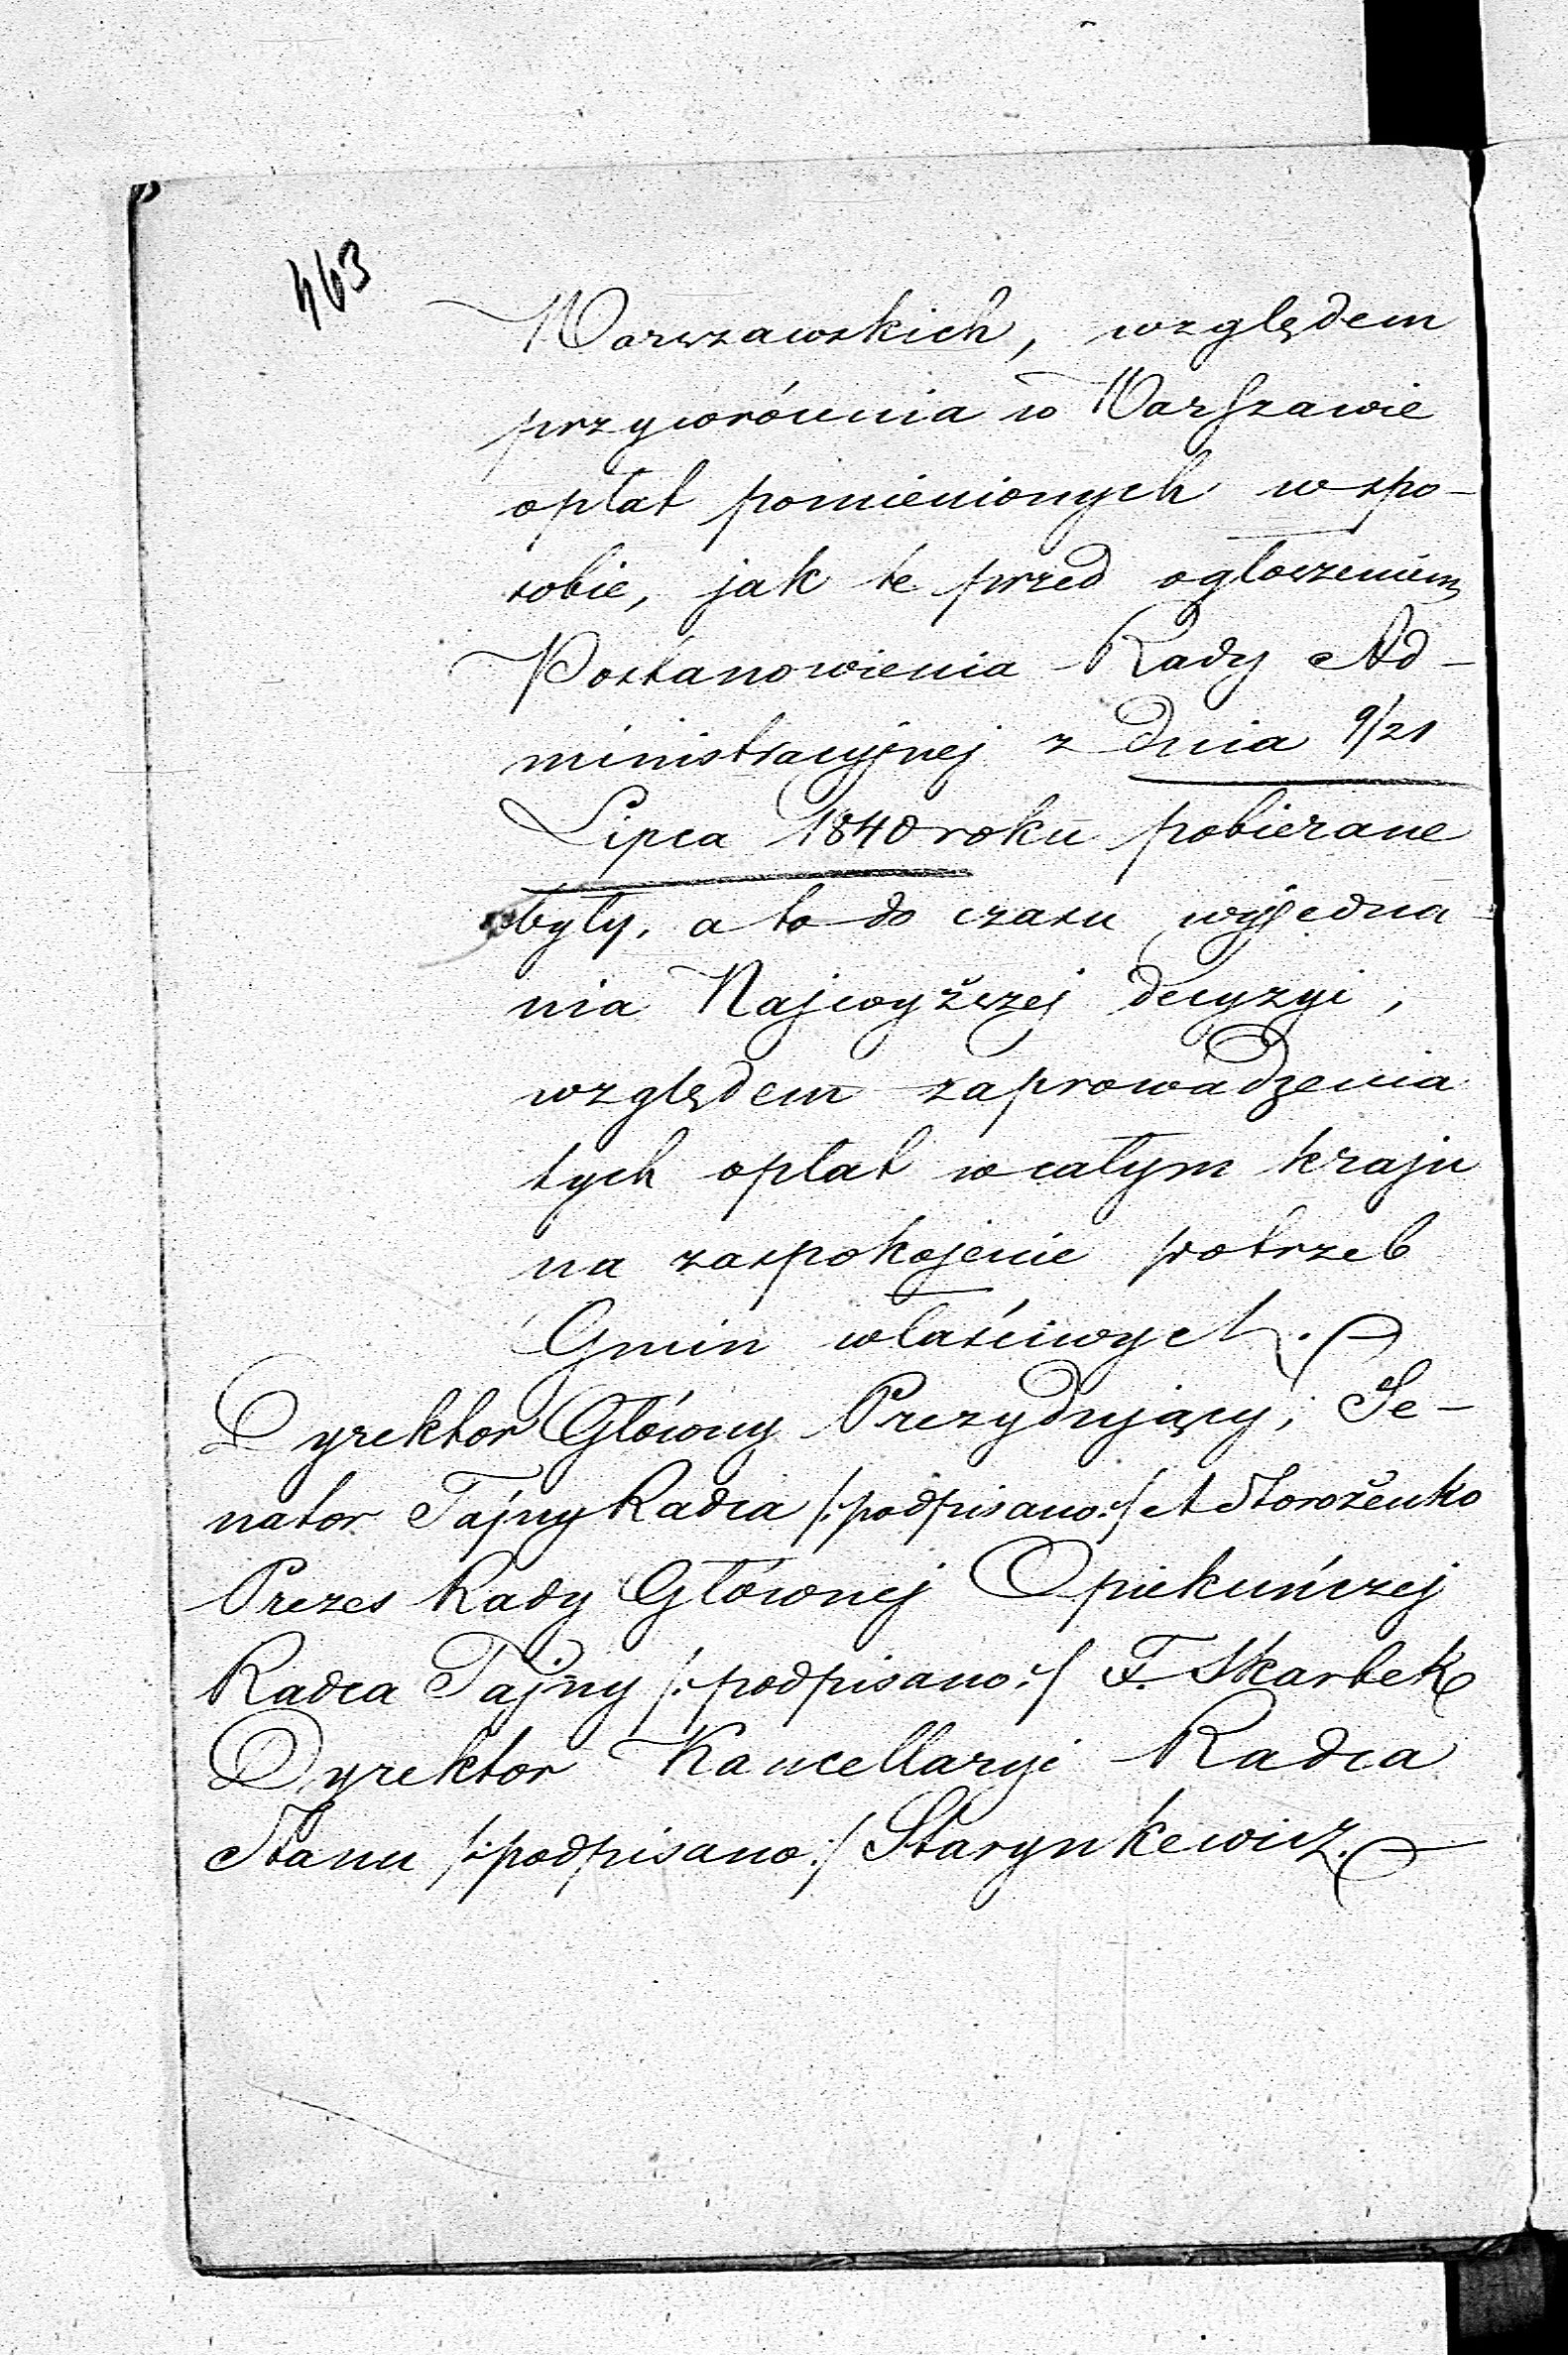 463
Warszawskich, względem
przywrócenia w Warszawie
opłat pomienionych w spo-
sobie, jak te przed ogłoszeniem
Postanowienia Rady Ad-
ministracyjnej z dnia 9/21
Lipca 1840 roku pobierane
były, a to do czasu wyjedna-
nia Najwyższej decyzyi,
względem zaprowadzenia
tych opłat w całym kraju
na zaspokojenie potrzeb
Gmin właściwych.
Dyrektor Główny Prezydujący, Se-
nator Tajny Radca /:podpisano:/ A Storożenko
Prezes Rady Głównej Opiekuńczej
Radca Tajny /:podpisano:/ F. Skarbek
Dyrektor Kancellaryi Radca
Stanu /:podpisano:/ Starynkewicz.